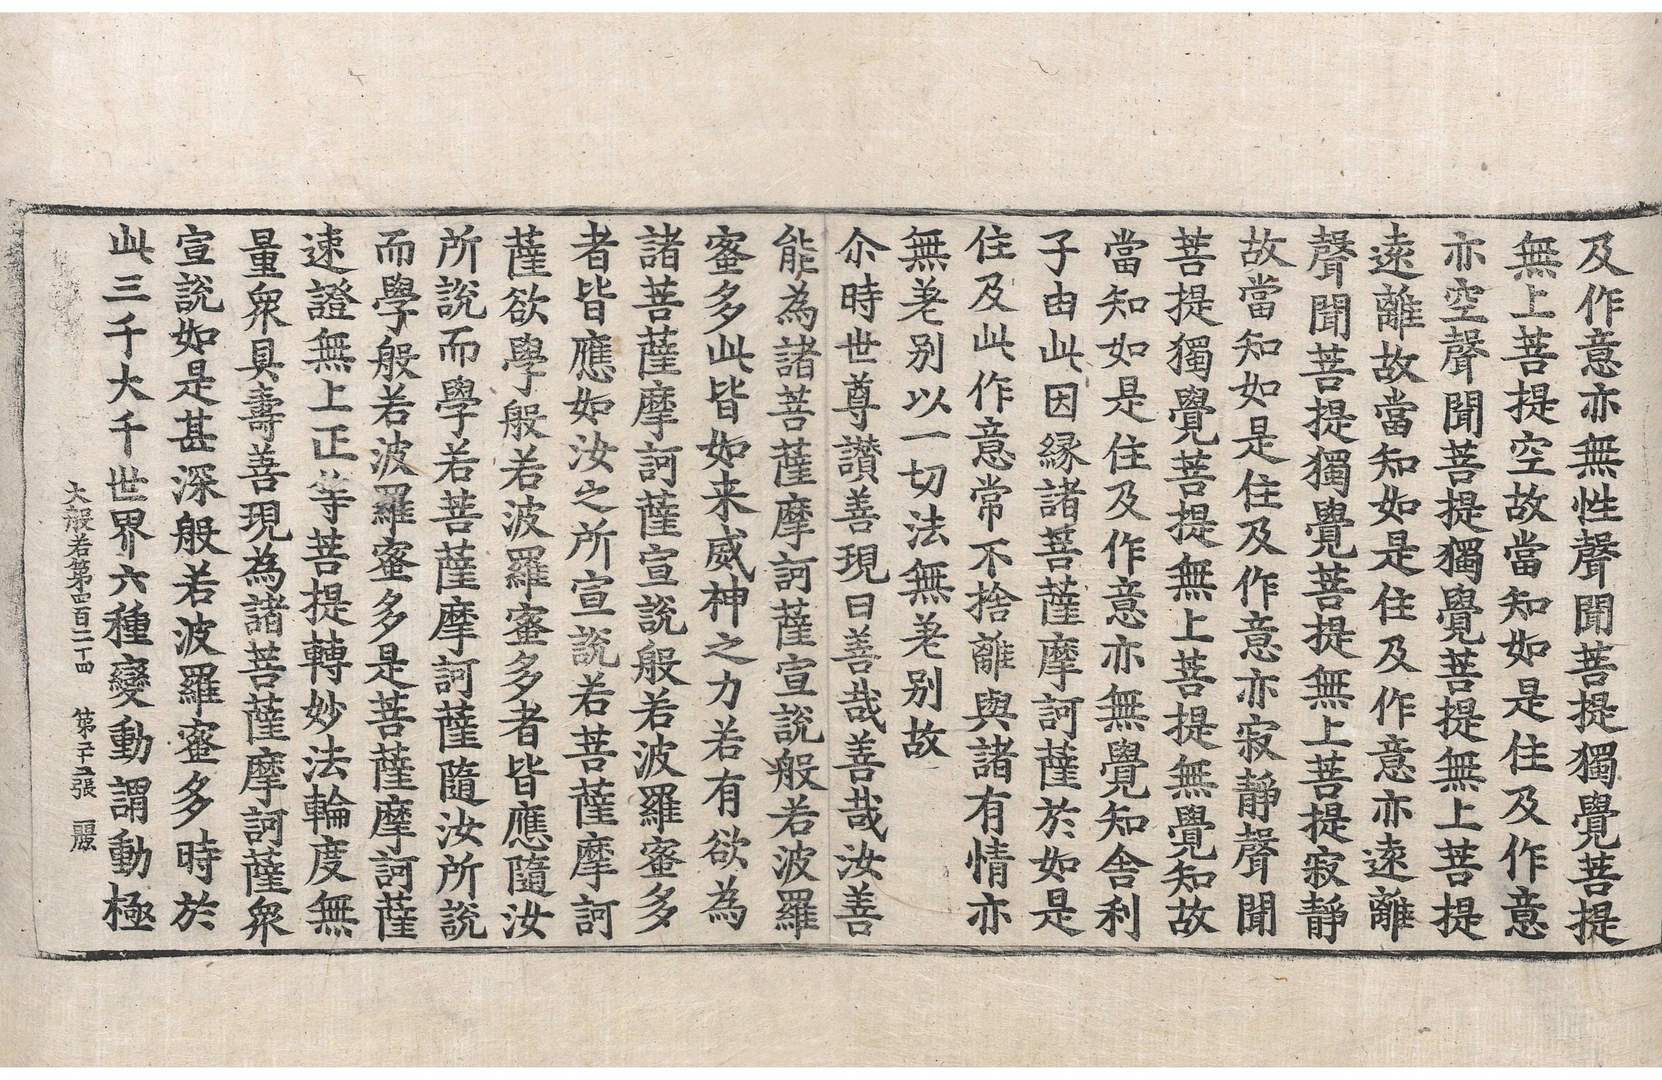 及作意亦無性聲聞菩提獨覺菩提
無上菩提空故當知如是住及作意
亦空聲聞菩提獨覺菩提無上菩提
遠離故當知如是住及作意亦遠離
聲聞菩提獨覺菩提無上菩提寂靜
故當知如是住及作意亦寂靜聲聞
菩提獨覺菩提無上菩提無覺知故
當知如是住及作意亦無覺知舍利
子由此因緣諸菩薩摩訶薩於如是
住及此作意常不捨離與諸有情亦
無差别以一切法無差别故
尒時世尊讚善現曰善哉善哉汝善
能為諸菩薩摩訶薩宣說般若波羅
蜜多此皆如来威神之力若有欲為
諸菩薩摩訶薩宣說般若波羅蜜多
者皆應如汝之所宣說若菩薩摩訶
薩欲學般若波羅蜜多者皆應隨汝
所說而學若菩薩摩訶薩隨汝所說
而學般若波羅蜜多是菩薩摩訶薩
速證無上正等菩提轉妙法輪度無
量衆具壽善現為諸菩薩摩訶薩衆
宣說如是甚深般若波羅蜜多時於
此三千大千世界六種變動謂動極
大般若第四百二十四 第十五張 麗